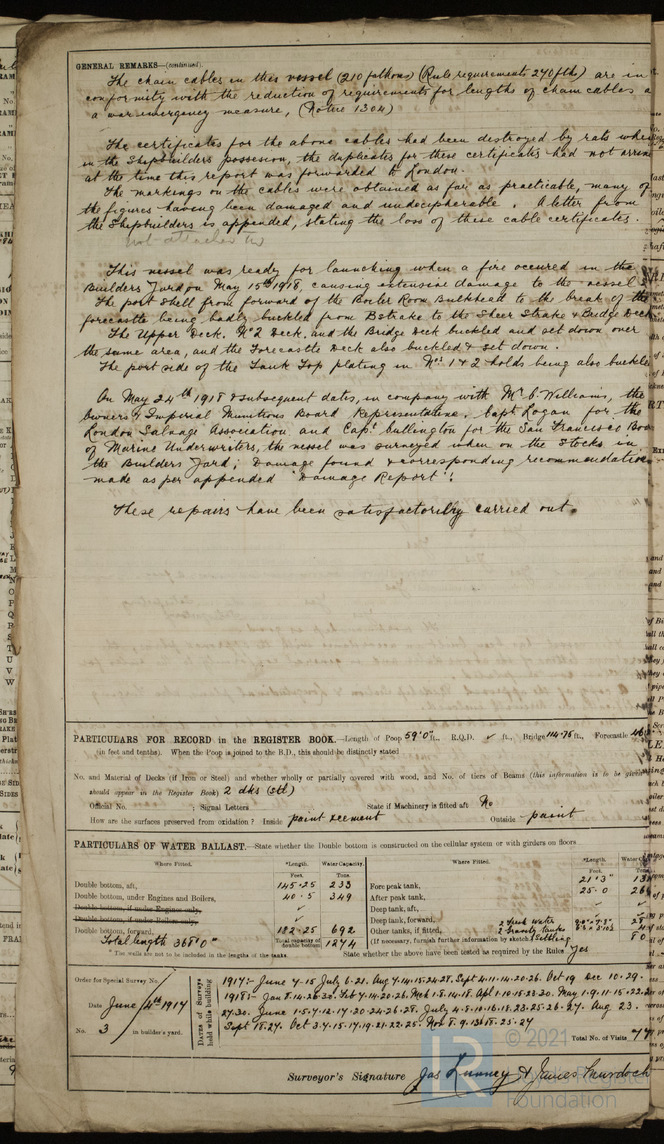 GENERAL REMARKS—(continued).
The chain cables in this vessel (210 fathoms) (Rule requirements 270 fths) are in
conformity with the reduction of requirements for lengths of chain cables a
a war emergency measure, (Notice 1304)
The certificates for the above cables had been destroyed by rats when
in the Shipbuilders possession, the duplicates for these certificates had not arrive
at the time this report was forwarded to London.
The markings on the cables were obtained as far as practicable, many of
the figures having been damaged and undecipherable. A letter from
the Shipbuilders is appended, stating the loss of these cable certificates.
not attached
This vessel was ready for launching when a fire occured in the
Builders Yard on May 15th 1918, causing extensive damage to the vessel
The port shell from forward of the Boiler Room Bulkhead to the break of the
forecastle being badly buckled from B strake to the Sheer Strake & Bridge Deck
The Upper Deck. No 2 Deck. and the Bridge Deck buckled and set down over
the same area, and the Forecastle Deck also buckled & set down.
The port side of the Tank Top plating in Nos 1 & 2 holds being also buckle
On May 24th 1918 & subsequent dates, in company with Mr C. Williams, the
Owners & Imperial Munitions Board Representative, Capt Logan for the
London Salvage Association and Capt. Cullington for the San Francisco Boa
of Marine Underwriters, the vessel was surveyed when on the Stocks in
the Builders Yard; Damage found & corresponding recommendation
made as per appended "Damage Report".
These repairs have been satisfactorily carried out.
PARTICULARS FOR RECORD in the REGISTER BOOK.—Length of Poop 59'0" ft., R.Q.D. ✓ ft., Bridge 114.75 ft., Forecastle
(in feet and tenths). When the Poop is joined to the B.D., this should be distinctly stated
No. and Material of Decks (if Iron or Steel) and whether wholly or partially covered with wood, and No. of tiers of Beams (this information is to be given
should appear in the Register Book) 2 dks (stl)
Official No. ; Signal Letters State if Machinery is fitted aft No
How are the surfaces preserved from oxidation? Inside paint & cement Outside paint
PARTICULARS OF WATER BALLAST.—State whether the Double bottom is constructed on the cellular system or with girders on floors
Where Fitted. *Length. Water Capacity. Where Fitted. *Length. Water
Feet. Tons. Feet. Tons.
Double bottom, aft, 145.25 233 Fore peak tank, 21'3"
Double bottom, under Engines and Boilers, 40.5 349 After peak tank, 25.0
Double bottom, if under Engines only, ✓ Deep tank, aft, ✓
Double bottom, if under Boilers only, ✓ Deep tank, forward, 2 fresh water
Double bottom, forward, 182.25 692 Other tanks, if fitted, 2 Gravity tanks
Total length 368'0" Total capacity of double bottom 1274 (If necessary, furnish further information by sketch.) Settling
*The walls are not to be included in the lengths of the tanks. State whether the above have been tested as required by the Rules Yes
Order for Special Survey No.
Date June 4th 1917
No. 3 in builder's yard.
Dates of Survey held while building
1917:- June 7-15 July 6-21. Aug 7-14-15-24-28. Sept 4-11-14-20-26. Oct 19 Dec 10-29.
1918:- Jan 8-14-26-30. Feb 7-14-20-26. Mch 1-8-14-18. Apl 1-10-18-23-30. May 1-9-11-15-22
27-30. June 1-5-7-12-17-20-24-26-28. July 4-8-10-16-18-23-25-26-27. Aug 23.
Sept 18.27. Oct 3-7-15-17-19-21-22-25. Nov 8.9.13.18-25-27
Total No. of Visits 77
Surveyor's Signature Jas Lunney & James Murdoch
© 2021
Foundation